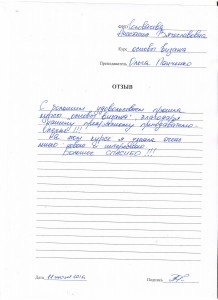 Анастасия Вячеславовна
Курс основы визажа
Преподаватель Ольга Панченко
ОТЗЫВ
С большим удовольствием прошла
курсы основы визажа, благодаря
нашему прекрасному преподавателю.
Спасибо!!!
На этих курсах я узнала очень
много нового и интересного
Большое СПАСИБО!!!
Дата
Подпись